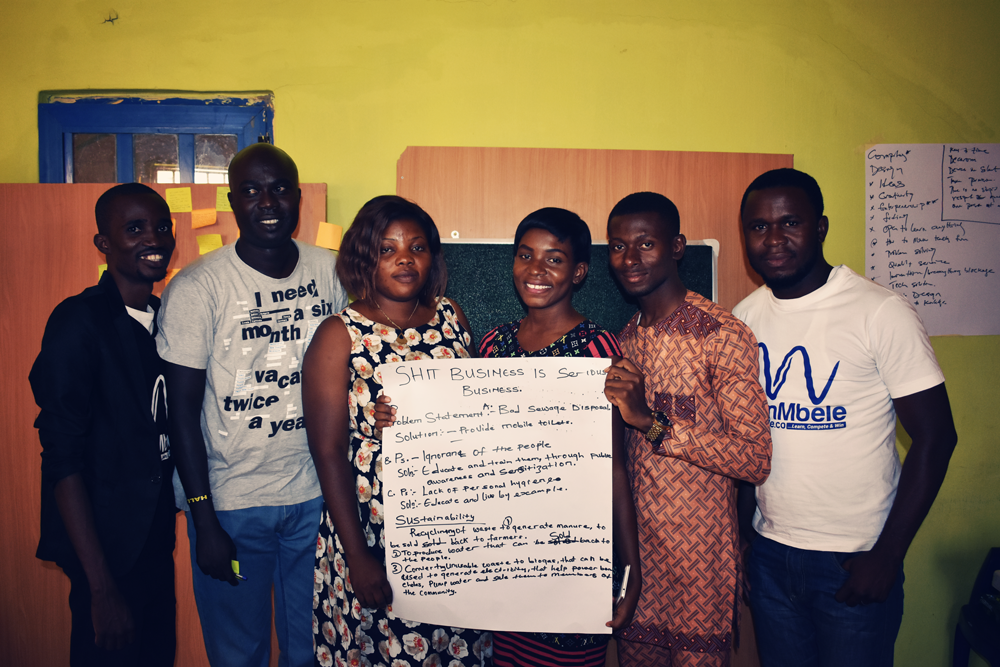 I need
a six
month
vacat
twice
a year
HALL
SHIT BUSINESS IS SERIOUS
BUSINESS.
A.
oblem Statement:- Bad Sewage Disposal
Solution:- Provide mobile toilets.
B. Ps. - Ignorance of the people
Soln:- Educate and train them, through public
awareness and sensitization.
C. Ps:- Lack of Personal hygiene
Soln:- Educate and live by example.
Sustainability
① Recycling of waste to generate manure, to
be sold back to farmers.
② To produce water that can be Sold back to
the people.
③ Convert unusable waste to biogas, that can be
used to generate electricity, that help power bore
holes, Pump water and sale them to members of
the community.
nMbele
e.co ...Learn, Compete & Win
Design
* Ideas
* Creativity
* finding
* open to learn anything
Problem solving
Quality service
Tech solution
Design